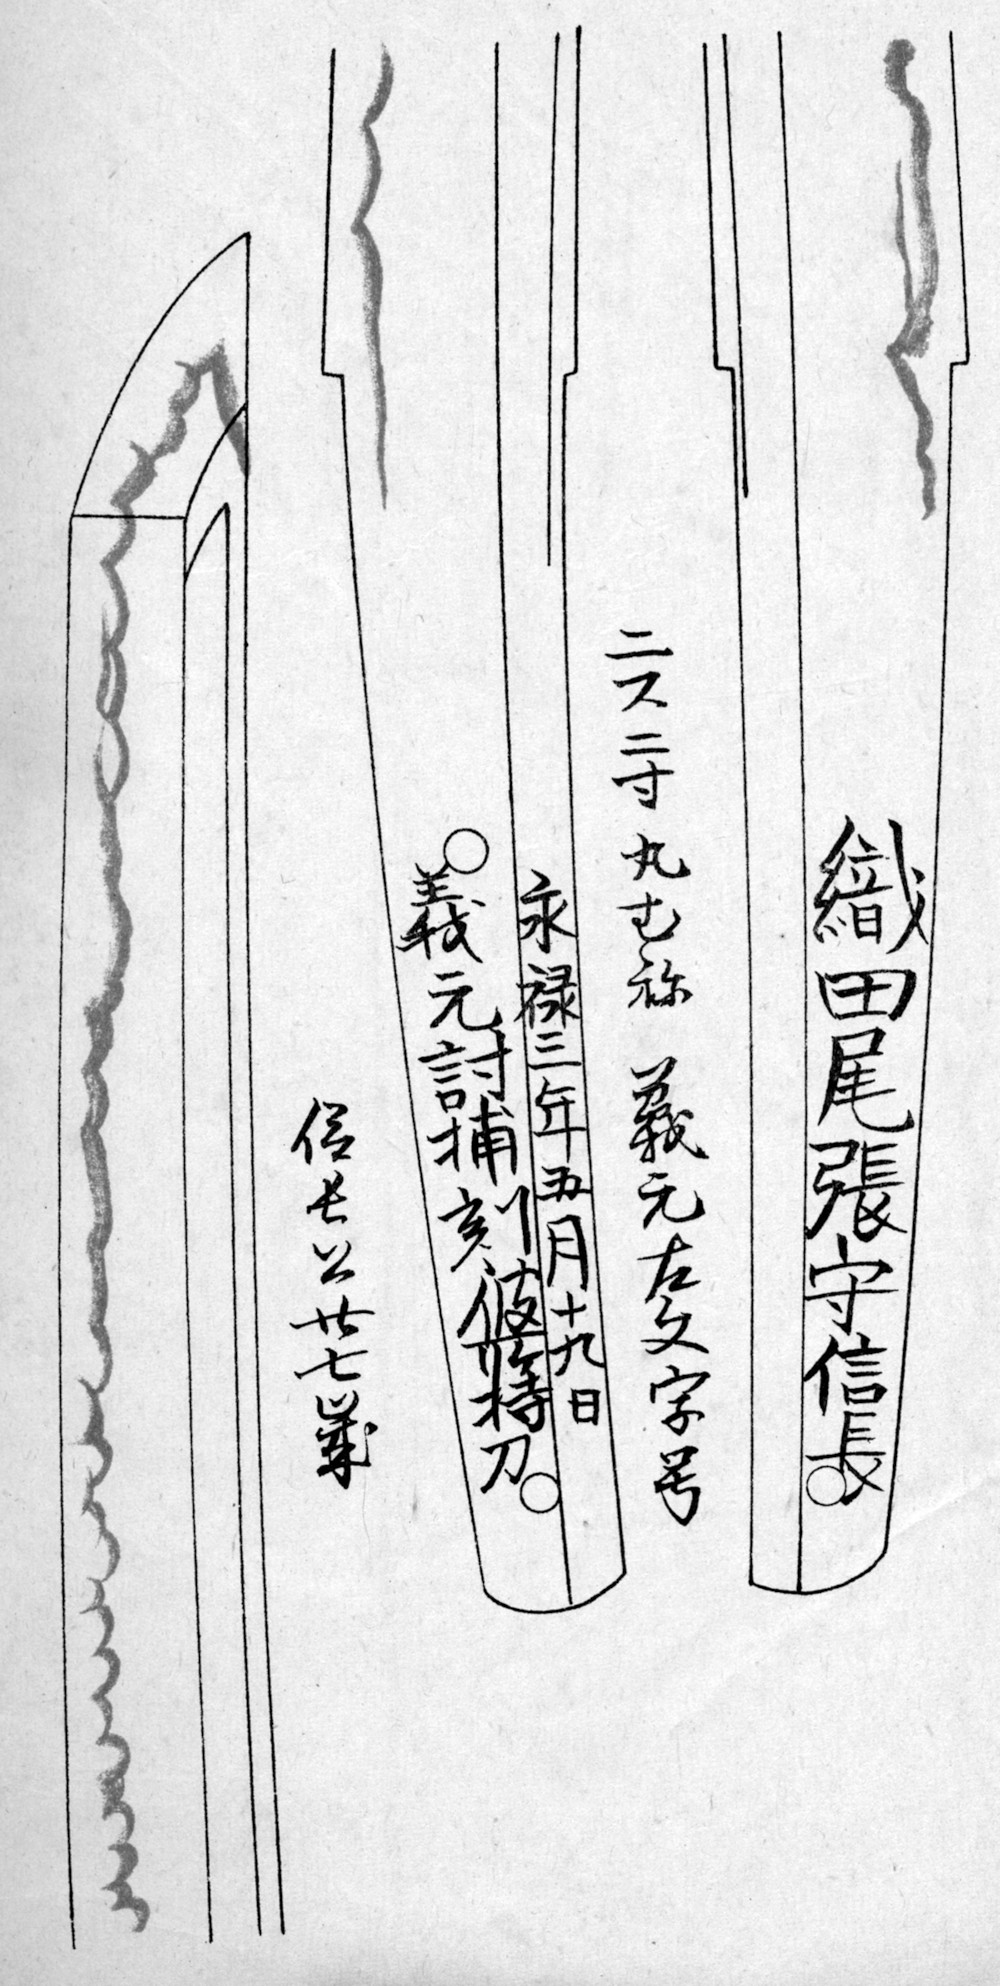 織田尾張守信長
二尺二寸 丸む祢 義元左文字号
永禄三年五月十九日
義元討捕刻彼所持刀
信長公廿七歳